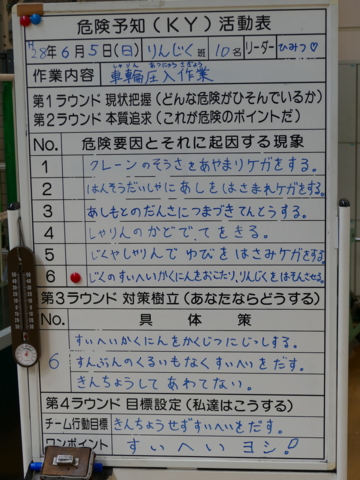 危険予知(KY)活動表
H28年6月5日(日) りんじく 班 10名 リーダー ひみつ♡
しゃりん あつにゅう さぎょう
作業内容 車輪圧入作業
第1ラウンド 現状把握(どんな危険がひそんでいるか)
第2ラウンド 本質追求(これが危険のポイントだ)
No. 危険要因とそれに起因する現象
1 クレーンのそうさをあやまりケガをする。
2 はんそうだいしゃにあしをはさまれケガをする。
3 あしもとのだんさにつまづきてんとうする。
4 しゃりんのかどで、てをきる。
5 じくやしゃりんでゆびをはさみケガをする。
6 じくのすいへいかくにんをおこたり、りんじくをはそんさせる。
第3ラウンド 対策樹立(あなたならどうする)
No. 具体策
すいへいかくにんをかくじつにじっしする。
6 すんぶんのくるいもなくすいへいをだす。
きんちょうしてあわてない。
第4ラウンド 目標設定(私達はこうする)
チーム行動目標 きんちょうせずすいへいをだす。
ワンポイント すいへいヨシ!